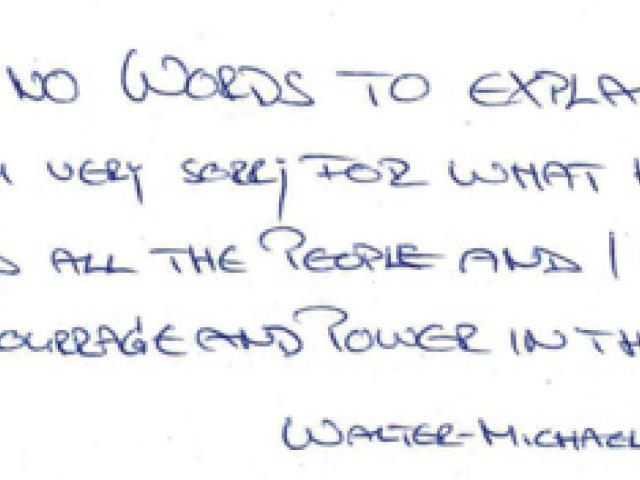 NO WORDS TO EXPLA
VERY SORRY FOR WHAT
ALL THE PEOPLE AND I
OURRAGE AND POWER IN TH
WALTER-MICHAEL